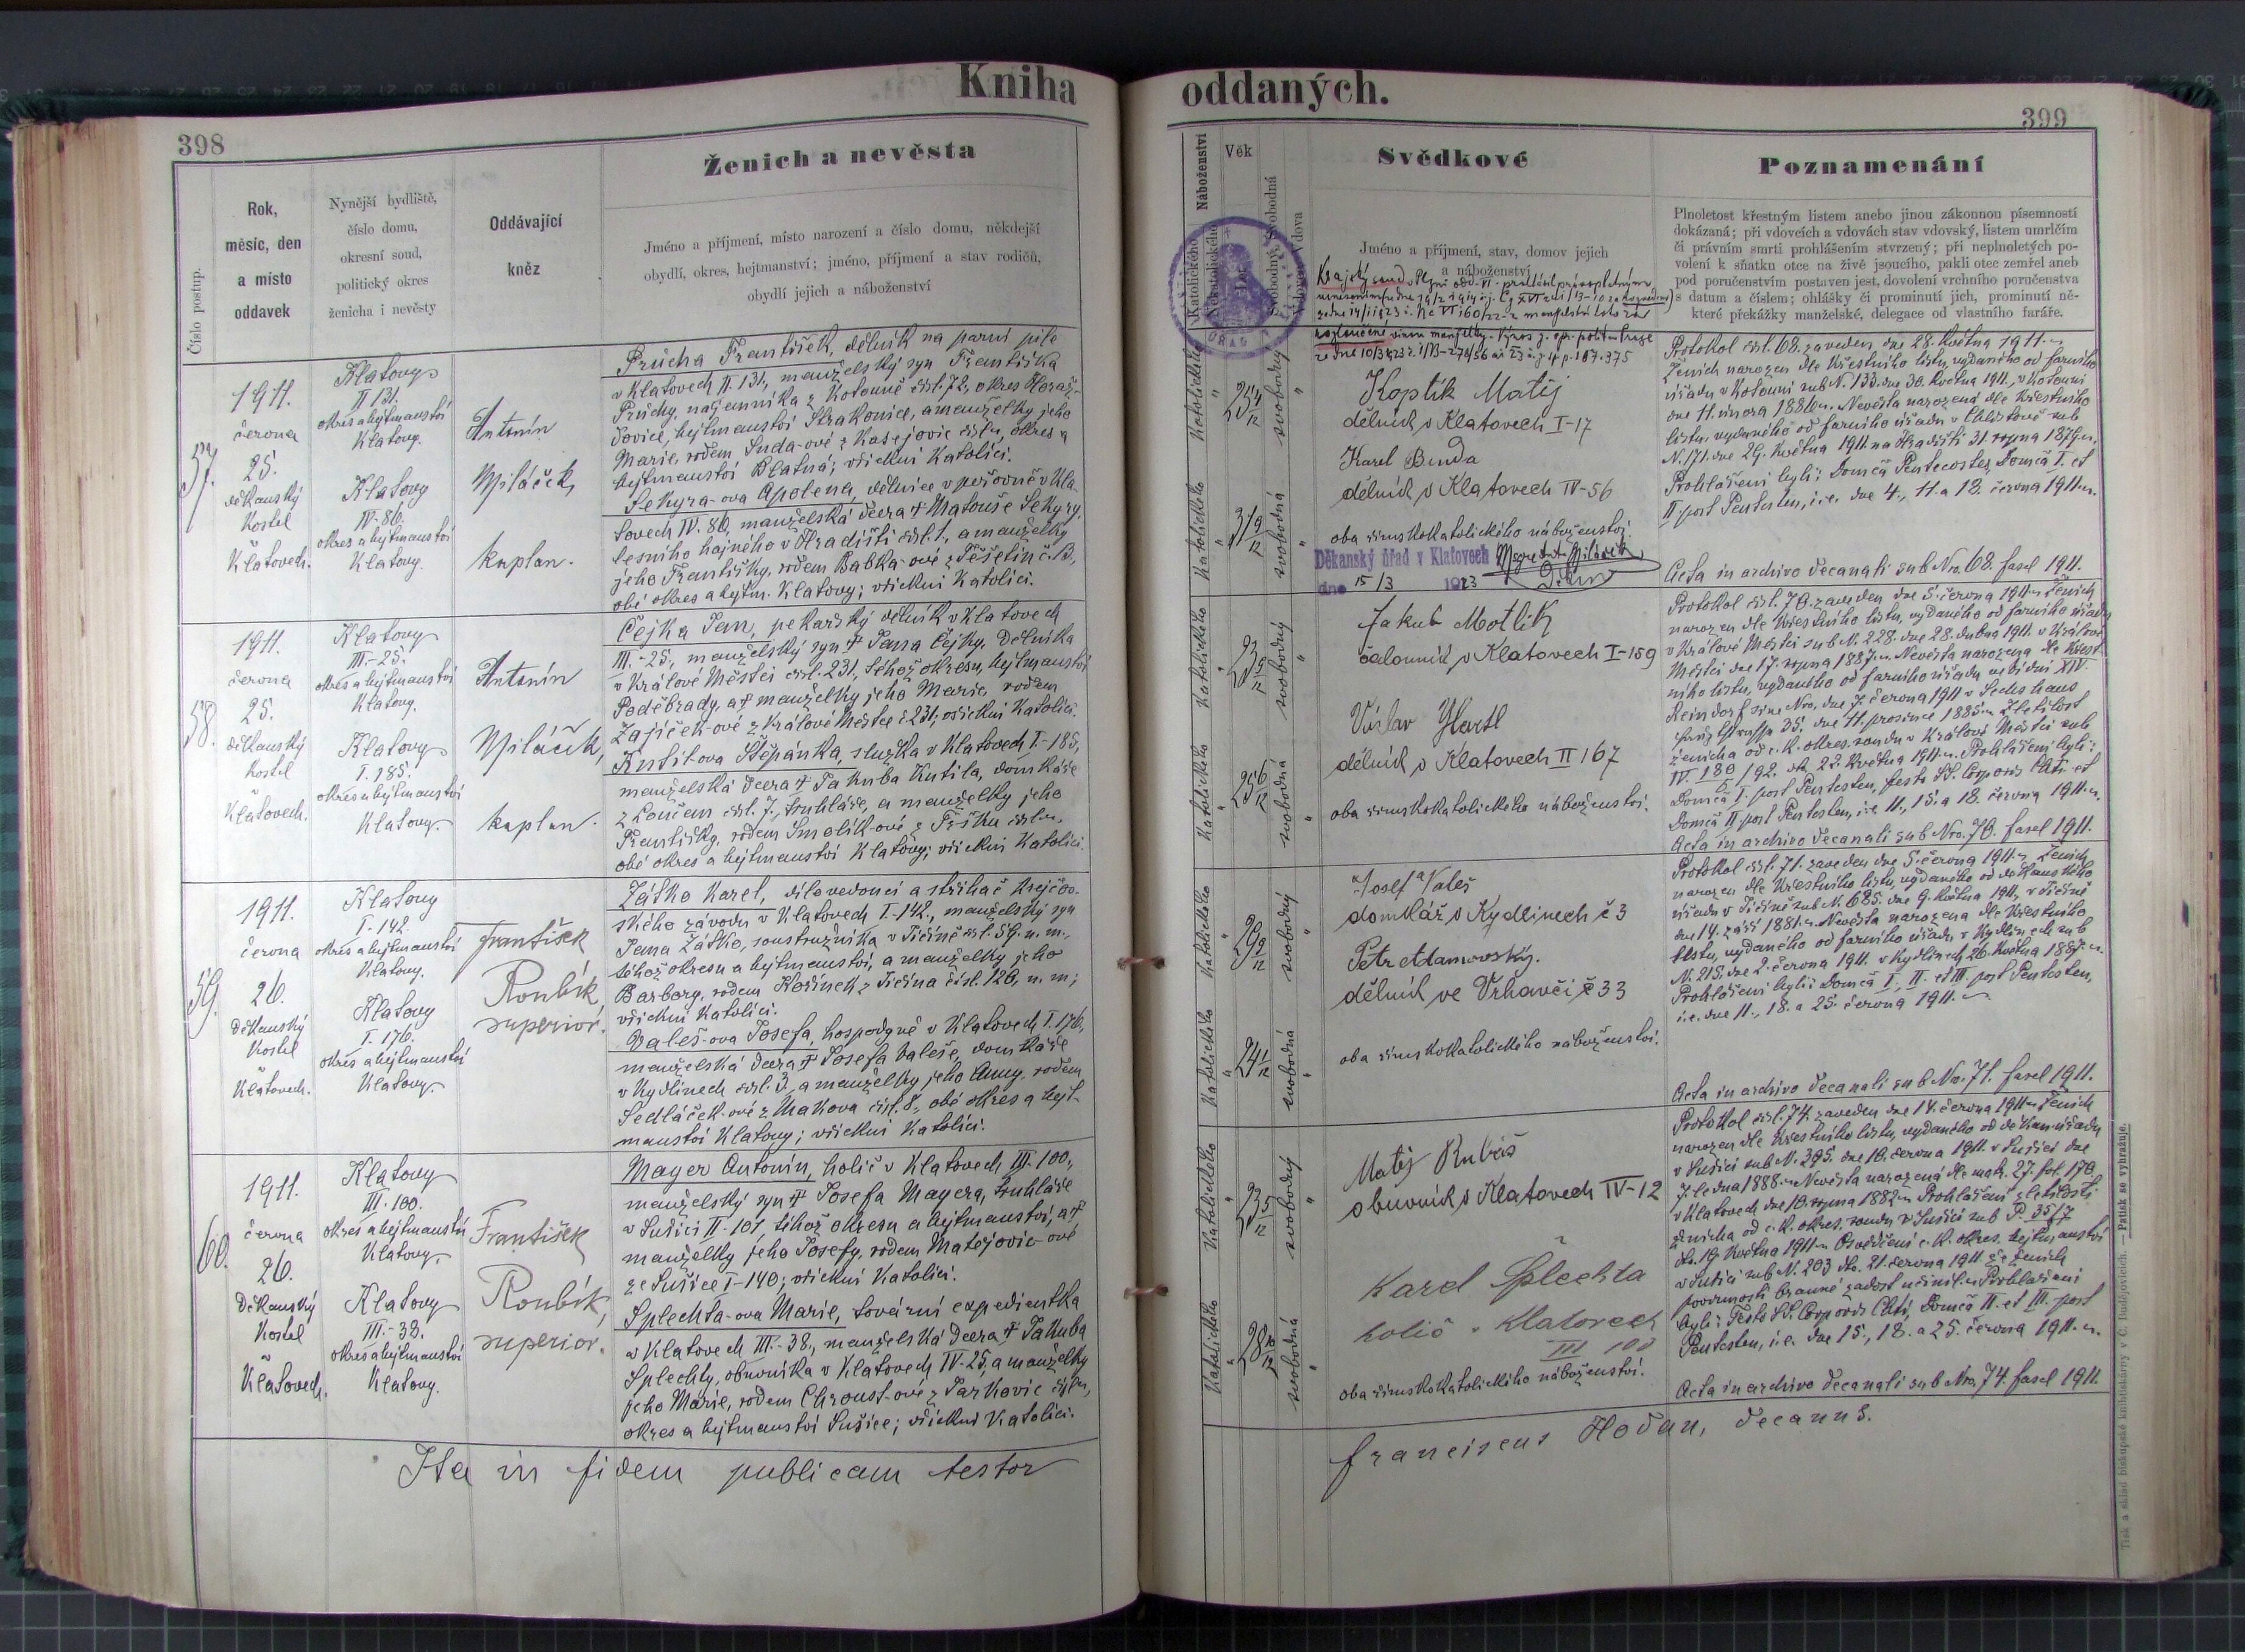 Kniha oddaných.
398
399
Číslo postup.
Rok,
měsíc, den
a místo
oddavek
Nynější bydliště,
číslo domu,
okresní soud,
politický okres
ženicha i nevěsty
Oddávající
kněz
Ženich a nevěsta
Jméno a příjmení, místo narození a číslo domu, někdejší
obydlí, okres, hejtmanství; jméno, příjmení a stav rodičů,
obydlí jejich a náboženství
Náboženství
Katolického
Nekatolického
Věk
Svobodný, Svobodná
Vdovec, Vdova
Svědkové
Jméno a příjmení, stav, domov jejich
a náboženství
Poznamenání
Plnoletost křestným listem anebo jinou zákonnou písemností
dokázaná; při vdovcích a vdovách stav vdovský, listem umrlčím
či právním smrti prohlášením stvrzený; při neplnoletých po-
volení k sňatku otce na živě jsoucího, pakli otec zemřel aneb
pod poručenstvím postaven jest, dovolení vrchního poručenstva
s datum a číslem; ohlášky či prominutí jich, prominutí ně-
které překážky manželské, delegace od vlastního faráře.
57.
1911.
června
25.
děkanský
kostel
v
Klatovech.
Klatovy
II 131.
okres a hejtmanství
Klatovy.
Klatovy
IV. 86.
okres a hejtmanství
Klatovy.
Antonín
Miláček,
kaplan.
Průcha František, dělník na parní pile
v Klatovech II. 131., manželský syn Františka
Průchy, nájemníka z Kotouně čísl. 72, okres Horaž-
ďovice, hejtmanství Strakonice, a manželky jeho
Marie, rodem Suda-ové z Kasejovic čísl. u, okres a
hejtmanství Blatná; všickni Katolíci.
Sekyra-ova Apolena, dělnice v pošovně v Kla-
tovech IV. 86, manželská dcera † Matouše Sekyry,
lesního hajného v Hradišti čísl. 1, a manželky
jeho Františky, rodem Babka-ové z Těšetin č. 13.,
obé okres a hejtm. Klatovy; všickni Katolíci.
Katolického
"
25 4/12
svobodný
"
Katolického
"
31 9/12
svobodná
"
Krajský soud v Plzni odd. VI. prohlásil právoplatným
Koptík Matěj
dělník v Klatovech I-17
Karel Binda
dělník v Klatovech IV-56
oba římskokatolického náboženství.
Děkanský úřad v Klatovech
dne 15/3 1923
Protokol čísl. 68. zaveden dne 28. května 1911.
Ženich narozen dle křestního listu, vydaného od farního
úřadu v Kotouni sub N. 133. dne 30. května 1911., v Kotouni
dne 11. února 1886. Nevěsta narozená dle křestního
listu, vydaného od farního úřadu v Chlistově sub
N. 171. dne 29. května 1911. na Hradišti 31. srpna 1879.
Prohlášeni byli: Domca Pentecostes, Domca I. et
II. post Pentecsten, i. e. dne 4., 11. a 18. června 1911.
Acta in archivo decanali sub Nro. 68. fasel 1911.
58.
1911.
června
25.
děkanský
kostel
v
Klatovech.
Klatovy
III.-25.
okres a hejtmanství
Klatovy.
Klatovy
I. 185.
okres a hejtmanství
Klatovy.
Antonín
Miláček,
kaplan.
Čejka Jan, pekařský dělník v Klatovech
III.-25., manželský syn † Jana Čejky, dělníka
v Králové Městci čísl. 231, téhož okresu, hejtmanství
Poděbrady, a † manželky jeho Marie, rodem
Zajíček-ové z Králové Městce č. 231; všickni Katolíci.
Kutil-ova Štěpánka, služka v Klatovech I.-185,
manželská dcera † Jakuba Kutila, domkáře
z Loučan čísl. 7., truhláře, a manželky jeho
Františky, rodem Smolík-ové z Tržku čísl. u,
obé okres a hejtmanství Klatovy; všickni Katolíci.
Katolického
"
23 5/12
svobodný
"
Katolického
"
25 6/12
svobodna
"
Jakub Motlík
čalouník v Klatovech I-159
Václav Hartl
dělník v Klatovech II 167
oba římskokatolického náboženství.
Protokol čísl. 70. zaveden dne 5. června 1911. Ženich
narozen dle křestního listu, vydaného od farního úřadu
v Králové Městci sub N. 228. dne 28. dubna 1911. v Králové
Městci dne 17. srpna 1887. Nevěsta narozena dle křest-
ního listu, vydaného od farního úřadu ve Vídni XIV.
Reindorf sine Nro. dne 7. června 1911 v Sechshaus
35. dne 11. prosince 1885. Zletilost
ženicha od c. k. okres. soudu v Králové Městci sub
IV. 180/6 192. dto 22. května 1911. Prohlášeni byli:
Domca I. post Pentcsten, festo SS. Corporis Chti. et
Domca II. post Pentcsten, i.e. 11., 15. a 18. června 1911.
Acta in archivo decanali sub Nro. 70. fasel 1911.
59.
1911.
června
26.
děkanský
kostel
v
Klatovech.
Klatovy
I-142.
okres a hejtmanství
Klatovy.
Klatovy
I. 176.
okres a hejtmanství
Klatovy.
František
Roubík,
superior.
Žátko Karel, dílovedoucí a střihač krejčov-
ského závodu v Klatovech I-142., manželský syn
Jana Žátko, soustružníka v Jičíně čísl. 59. n. m.,
téhož okresu a hejtmanství, a manželky jeho
Barbory, rodem Kořínek z Jičína čísl. 126, n. m.;
všickni Katolíci.
Valeš-ova Josefa, hospodyně v Klatovech I. 176,
manželská dcera † Josefa Valeše, domkáře
v Kydlinech čísl. 3., a manželky jeho Anny, rodem
Sedláček-ové z Makova čísl. 8., obé okres a hejt-
manství Klatovy; všickni Katolíci.
Katolického
"
29 9/12
svobodný
"
Katolického
"
24 1/12
svobodná
"
Josef Valeš
domkář v Kydlinech č 3
Petr Adamovský.
dělník ve Vrhavči č 33
oba římskokatolického náboženství.
Protokol čísl. 71. zaveden dne 5. června 1911. Ženich
narozen dle křestního listu, vydaného od děkanského
úřadu v Jičíně sub N. 685. dne 9. května 1911, v Jičíně
dne 14. září 1881. Nevěsta narozena dle křestního
listu, vydaného od farního úřadu v Kydlinech sub
N. 218. dne 2. června 1911. v Kydlinech 26. května 1887.
Prohlášeni byli: Domca I., II. et III. post Pentcsten,
i.e. dne 11., 18. a 25. června 1911.
Acta in archivo decanali sub Nro. 71. fasel 1911.
60.
1911.
června
26.
Děkanský
kostel
v
Klatovech.
Klatovy
III.-100.
okres a hejtmanství
Klatovy.
Klatovy
III.-38.
okres a hejtmanství
Klatovy.
František
Roubík,
superior.
Mayer Antonín, holič v Klatovech III.-100.,
manželský syn † Josefa Mayera, truhláře
v Sušici II.-101 téhož okresu a hejtmanství, a †
manželky jeho Josefy, rodem Matějovic-ové
ze Sušice I-140; všickni Katolíci.
Splechta-ova Marie, tovární expedientka
v Klatovech III.-38., manželská dcera † Jakuba
Splechty, obuvníka v Klatovech IV-25, a manželky
jeho Marie, rodem Chroust-ové z
okres a hejtmanství Sušice; všickni Katolíci.
Katolického
"
23 5/12
svobodný
"
Katolického
"
28 10/12
svobodná
"
Matěj Rubáš
obuvník v Klatovech IV-12
Karel Šplechta
holič v Klatovech
III 100
oba římskokatolického náboženství.
Protokol čísl. 74. zaveden dne 14. června 1911. Ženich
narozen dle křestního listu, vydaného od děkan. úřadu
v Sušici sub N. 395. dne 10. června 1911. v Sušici dne
7. ledna 1888. Nevěsta narozená dle matr. 27. fol. 170.
v Klatovech dne 10. srpna 1882. Prohlášení zletilosti
ženicha od c. k. okres. soudu v Sušici sub P. 35/7
dto. 19. května 1911. Osvědčení c. k. okres. hejtmanství
v Sušici sub N. 203 dto. 21. června 1911. že ženich
povinnosti branné zadost učinil. Prohlášeni
byli: Festo SS. Corporis Chti, Domca II. et III. post
Pentcsten, i.e. dne 15., 18. a 25. června 1911.
Acta in archivo decanali sub Nro. 74. fasel 1911.
Ita in fidem publicam testor
Franciscus Hodan, decanus.
Tisk a sklad biskupské knihtiskárny v Č. Budějovicích. — Patisk se vyhražuje.